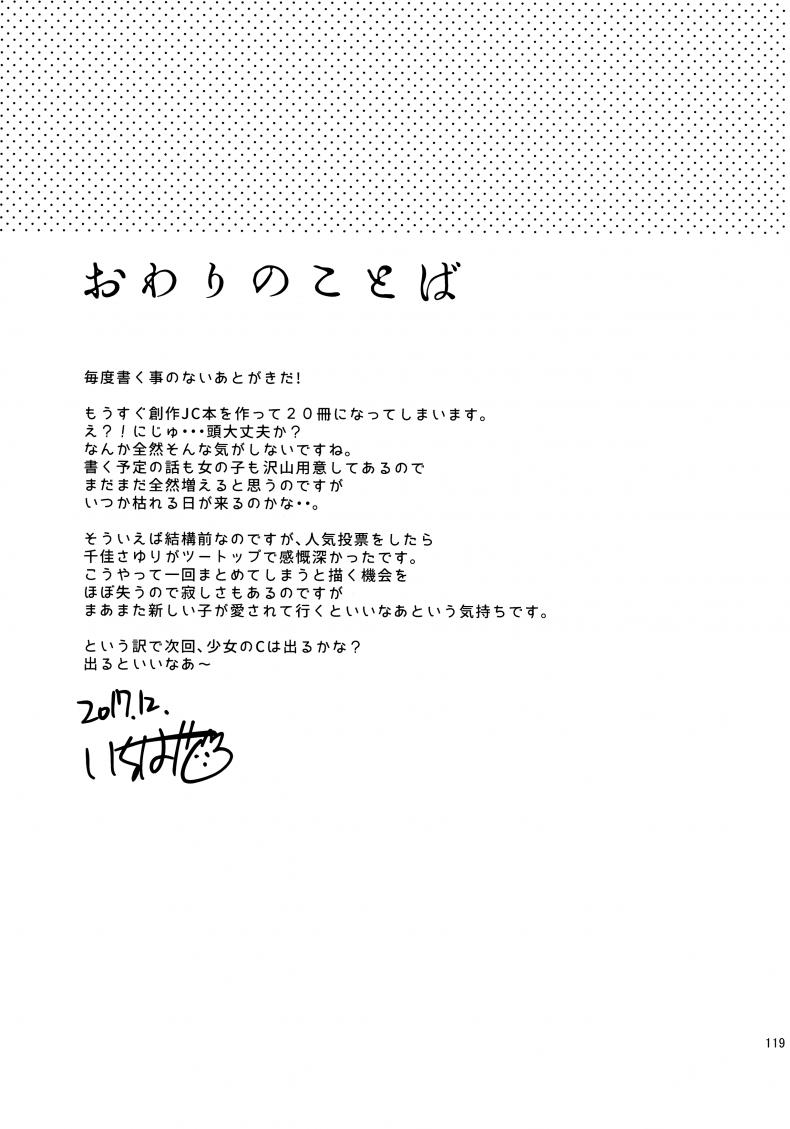 おわりのことば
毎度書く事のないあとがきだ!
もうすぐ創作JC本を作って２０冊になってしまいます。
え？！にじゅ・・・頭大丈夫か？
なんか全然そんな気がしないですね。
書く予定の話も女の子も沢山用意してあるので
まだまだ全然増えると思うのですが
いつか枯れる日が来るのかな・・。
そういえば結構前なのですが、人気投票をしたら
千佳さゆりがツートップで感慨深かったです。
こうやって一回まとめてしまうと描く機会を
ほぼ失うので寂しさもあるのですが
まあまた新しい子が愛されて行くといいなあという気持ちです。
という訳で次回、少女のCは出るかな？
出るといいなあ～
2017.12.
119